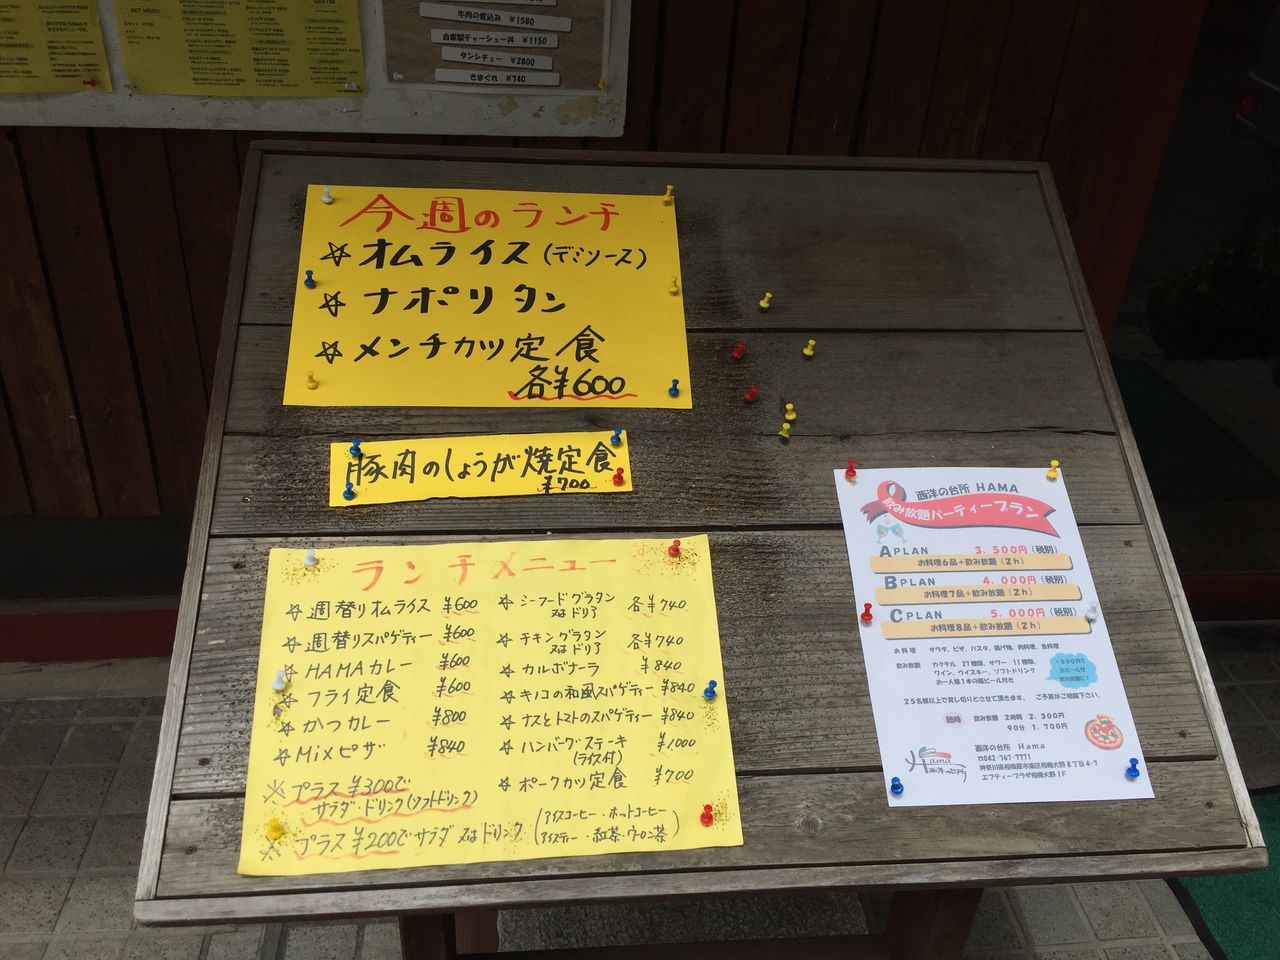 SET MENU
牛肉の煮込み ¥1580
自家製チャーシュー丼 ¥1150
タンシチュー ¥2800
きまぐれ ¥740
今週のランチ
☆オムライス(デミソース)
☆ナポリタン
☆メンチカツ定食
各¥600
豚肉のしょうが焼定食
¥700
ランチメニュー
☆週替りオムライス ¥600
☆週替りスパゲティー ¥600
☆HAMAカレー ¥600
☆フライ定食 ¥600
☆かつカレー ¥800
☆Mixピザ ¥840
☆シーフードグラタン
又はドリア 各¥740
☆チキングラタン
又はドリア 各¥740
☆カルボナーラ ¥840
☆キノコの和風スパゲティー ¥840
☆ナスとトマトのスパゲティー ¥840
☆ハンバーグステーキ ¥1000
(ライス付)
☆ポークカツ定食 ¥700
※プラス¥300で
サラダ・ドリンク(ソフトドリンク)
※プラス¥200でサラダ又はドリンク
(アイスコーヒー・ホットコーヒー
アイスティー・紅茶・ウーロン茶)
西洋の台所 HAMA
飲み放題パーティープラン
A PLAN 3.500円(税別)
お料理6品+飲み放題(2h)
B PLAN 4.000円(税別)
お料理7品+飲み放題(2h)
C PLAN 5.000円(税別)
お料理8品+飲み放題(2h)
お料理 サラダ、ピザ、パスタ、揚げ物、肉料理、魚料理
飲み放題 カクテル 27種類、サワー 11種類、
ワイン、ウイスキー、ソフトドリンク
お一人様1本の瓶ビール付き
+500円で
生ビール付
飲み放題に!
25名様以上で貸し切りとさせて頂きます。 ご予算はご相談下さい。
随時 飲み放題 2時間 2.300円
90分 1.700円
Hama
西洋の台所
西洋の台所 Hama
☎042-767-7771
神奈川県相模原市南区相模大野8丁目4-7
エフティープラザ相模大野1F